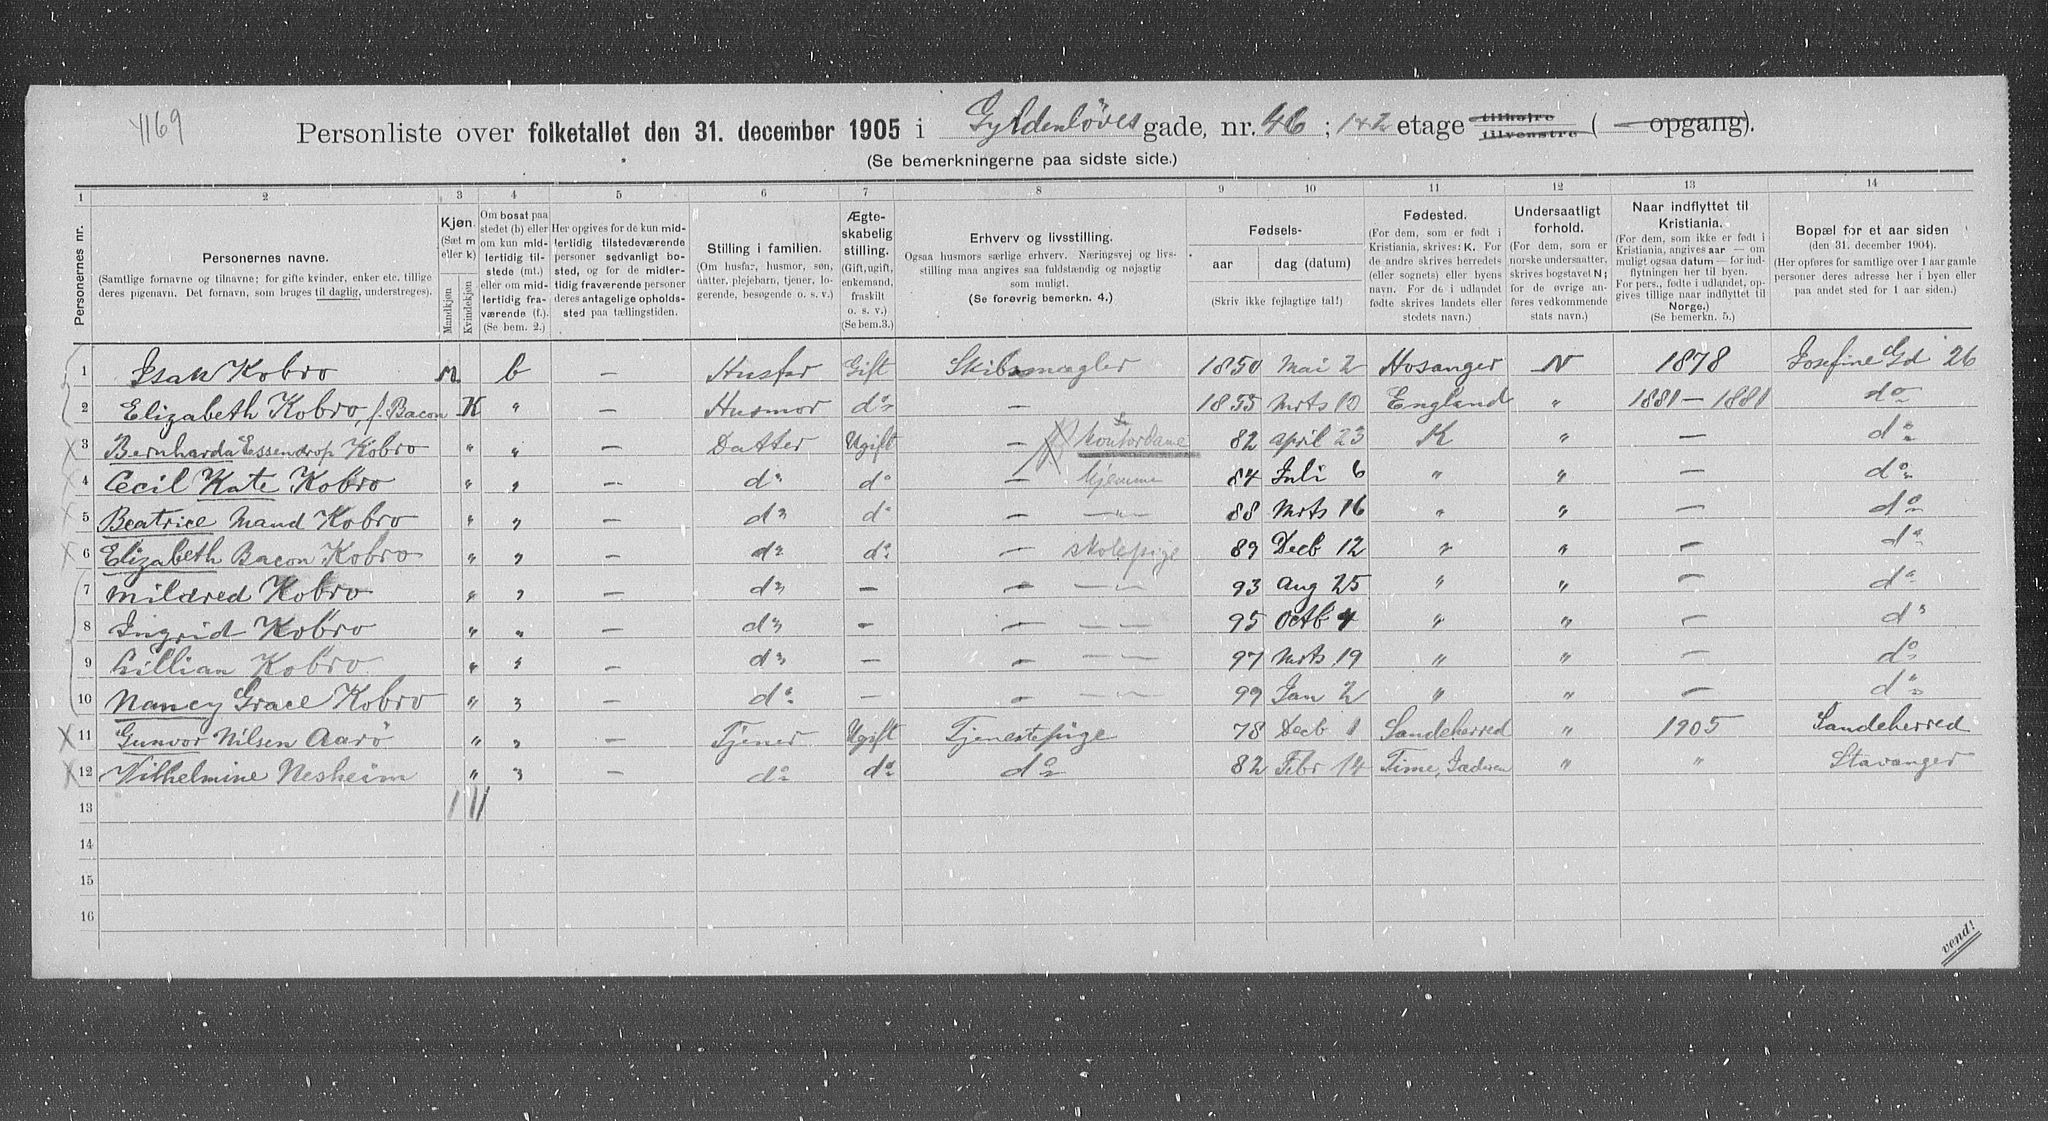 4169
Personliste over folketallet den 31. december 1905 i Gyldenløves gade, nr. 46 ; 1 & 2 etage tilhøjre tilvenstre ( — opgang).
(Se bemerkningerne paa sidste side.)
1 2 3 4 5 6 7 8 9 10 11 12 13 14
Personernes nr.
Personernes navne.
(Samtlige fornavne og tilnavne; for gifte kvinder, enker etc. tillige
deres pigenavn. Det fornavn, som bruges til daglig, understreges).
Kjøn.
(Sæt m
eller k)
Mandkjøn
Kvindekjøn
Om bosat paa
stedet (b) eller
om kun mid-
lertidig til-
stede (mt.)
eller om mid-
lertidig fra-
værende (f.).
(Se bem. 2.)
Her opgives for de kun mid-
lertidig tilstedeværende
personer sedvanlig bo-
sted, og for de midler-
tidig fraværende personer
deres antagelige opholds-
sted paa tællingstiden.
Stilling i familien.
(Om husfar, husmor, søn,
datter, plejebarn, tjener, lo-
gerende, besøgende o. s. v.)
Ægte-
skabelig
stilling.
(Gift, ugift,
enkemand,
fraskilt
o. s. v.)
(Se bem. 3.)
Erhverv og livsstilling.
Ogsaa husmors særlige erhverv. Næringsvej og livs-
stilling maa angives saa fuldstændig og nøjagtig
som muligt.
(Se forøvrig bemerkn. 4.)
Fødsels-
aar
dag (datum)
(Skriv ikke fejlagtige tal!)
Fødested.
(For dem, som er født i
Kristiania, skrives: K. For
de andre skrives herredets
(eller sognets) eller byens
navn. For de i udlandet
fødte skrives landets eller
stedets navn.)
Undersaatligt
forhold.
(For dem, som er
norske undersaatter,
skrives bogstavet N;
for de øvrige an-
føres vedkommende
stats navn.)
Naar indflyttet til
Kristiania.
(For dem, som ikke er født i
Kristiania, angives aar — om
muligt ogsaa datum — for ind-
flytningen her til byen.
For pers., fødte i udlandet, op-
gives tillige naar indflyttet til
Norge.)
(Se bemerkn. 5.)
Bopæl for et aar siden
(den 31. december 1904).
(Her opføres for samtlige over 1 aar gamle
personer deres adresse her i byen eller
paa andet sted for 1 aar siden.)
1 Isak Kobro m. b — Husfar Gift Skibsmægler 1850 Mai 2 Hosanger N 1878 Josefine Gd 26
2 Elizabeth Kobro, f. Bacon K " — Husmor do — 1855 Mrts 10 England " 1881 — 1881 do
3 Bernharda Essendrop Kobro " " — Datter Ugift — Kontordame 82 april 23 K " — do
4 Cecil Kate Kobro " " — do do — hjemme 84 Juli 6 " " — do
5 Beatrice Maud Kobro " " — do do — " 88 Mrts 16 " " — do
6 Elizabeth Bacon Kobro " " — do do — skolepige 89 Decb 12 " " — do
7 Mildred Kobro " " — do — — — 93 Aug 25 " " — do
8 Ingrid Kobro " " — do — — — 95 Octb 4 " " — do
9 Lillian Kobro " " — do — — — 97 Mrts 19 " " — do
10 Nancy Grace Kobro " " — do — — — 99 Jan 2 " " — do
11 Gunvor Nilsen Aarø " " — Tjener Ugift Tjenestepige 78 Decb 1 Sandeherred " 1905 Sandeherred
12 Wilhelmine Nesheim " " — do do do 82 Febr 14 Time, Jæderen " " Stavanger
13 1 11
14
15
16
vend!